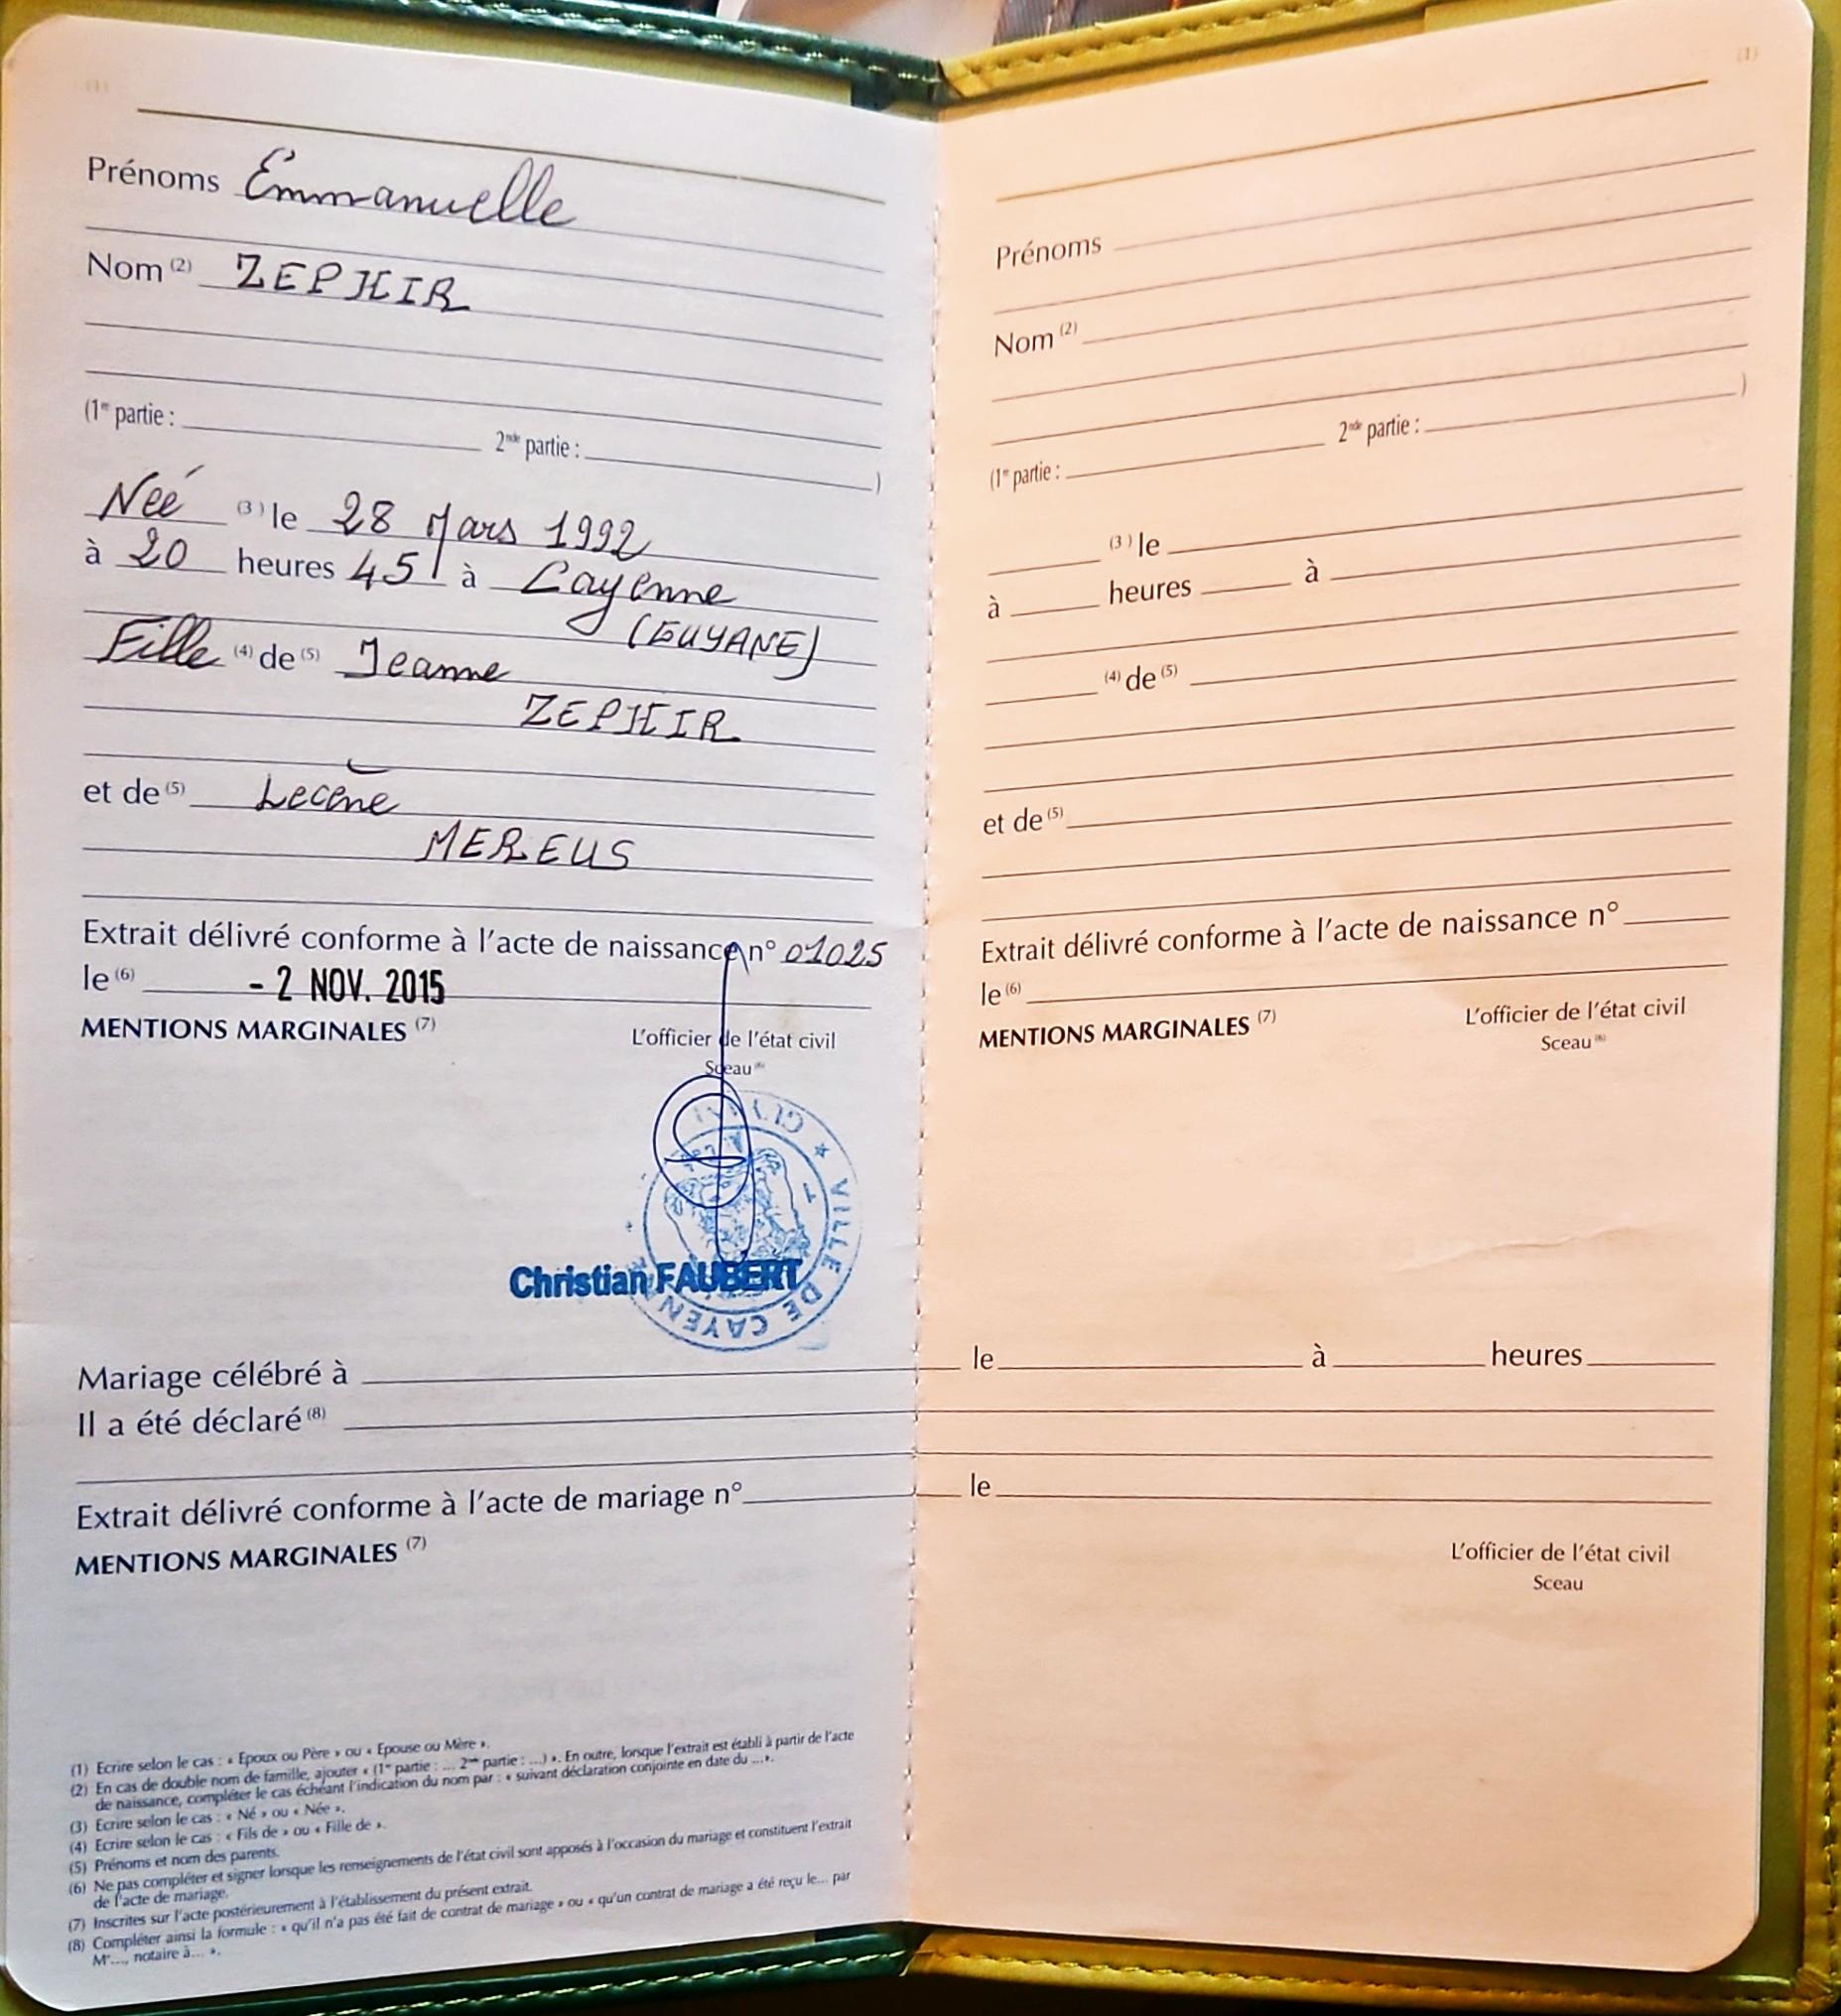 (1)
Prénoms Emmanuelle
Nom (2) ZEPHIR
(1re partie : 2nde partie : )
Neé (3) le 28 Mars 1992
à 20 heures 45 à Cayenne
(GUYANE)
Fille (4) de (5) Jeanne
ZEPHIR
et de (5) Lecene
MEREUS
Extrait délivré conforme à l'acte de naissance n° 01025
le (6) - 2 NOV. 2015
MENTIONS MARGINALES (7) L'officier de l'état civil
Sceau (6)
VILLE DE CAYENNE
Christian FAUBERT
(1)
Prénoms
Nom (2)
(1re partie : 2nde partie : )
(3) le
à heures à
(4) de (5)
et de (5)
Extrait délivré conforme à l'acte de naissance n°
le (6)
MENTIONS MARGINALES (7) L'officier de l'état civil
Sceau (6)
Mariage célébré à le à heures
Il a été déclaré (8)
Extrait délivré conforme à l'acte de mariage n° le
MENTIONS MARGINALES (7) L'officier de l'état civil
Sceau
(1) Ecrire selon le cas : « Epoux ou Père » ou « Epouse ou Mère ».
(2) En cas de double nom de famille, ajouter « (1re partie : ... 2nde partie : ...) ». En outre, lorsque l'extrait est établi à partir de l'acte
de naissance, compléter le cas échéant l'indication du nom par : « suivant déclaration conjointe en date du ... ».
(3) Ecrire selon le cas : « Né » ou « Née ».
(4) Ecrire selon le cas : « Fils de » ou « Fille de ».
(5) Prénoms et nom des parents.
(6) Ne pas compléter et signer lorsque les renseignements de l'état civil sont apposés à l'occasion du mariage et constituent l'extrait
de l'acte de mariage.
(7) Inscrites sur l'acte postérieurement à l'établissement du présent extrait.
(8) Compléter ainsi la formule : « qu'il n'a pas été fait de contrat de mariage » ou « qu'un contrat de mariage a été reçu le... par
Me..., notaire à... ».